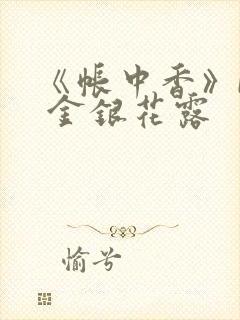 《帐中香》
金银花露
愉兮